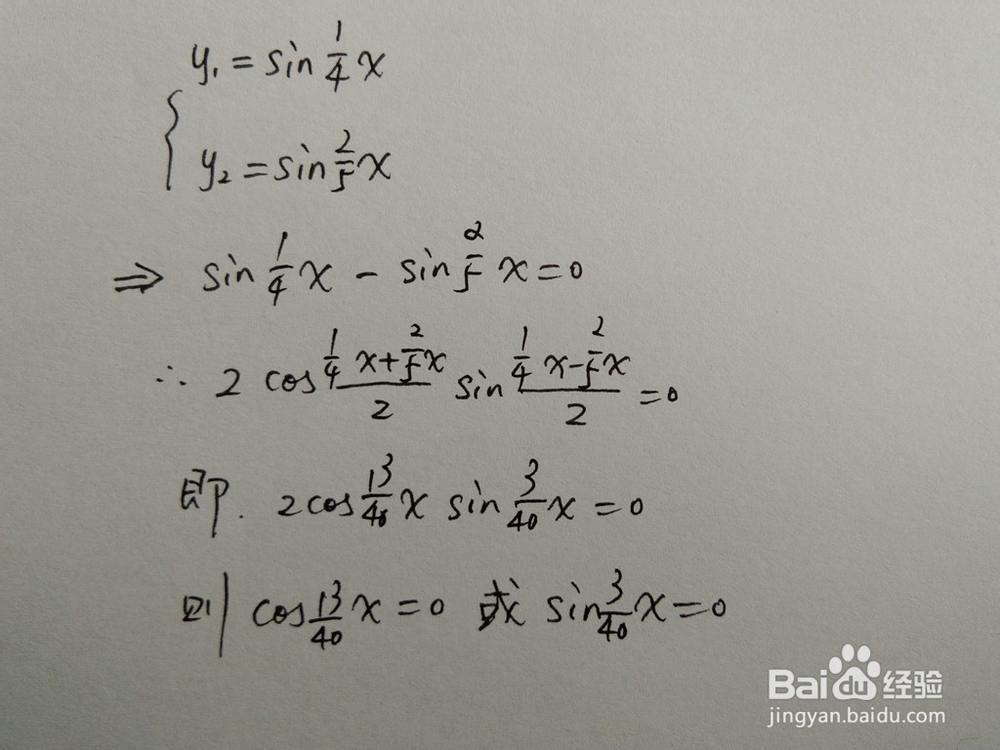 y₁ = sin 1/4 x
y₂ = sin 2/5 x
⇒ sin 1/4 x - sin 2/5 x = 0
∴ 2 cos (1/4 x + 2/5 x)/2 sin (1/4 x - 2/5 x)/2 = 0
即. 2 cos 13/40 x sin 3/40 x = 0
则 cos 13/40 x = 0 或 sin 3/40 x = 0
Baidu 经验
jingyan.baidu.com